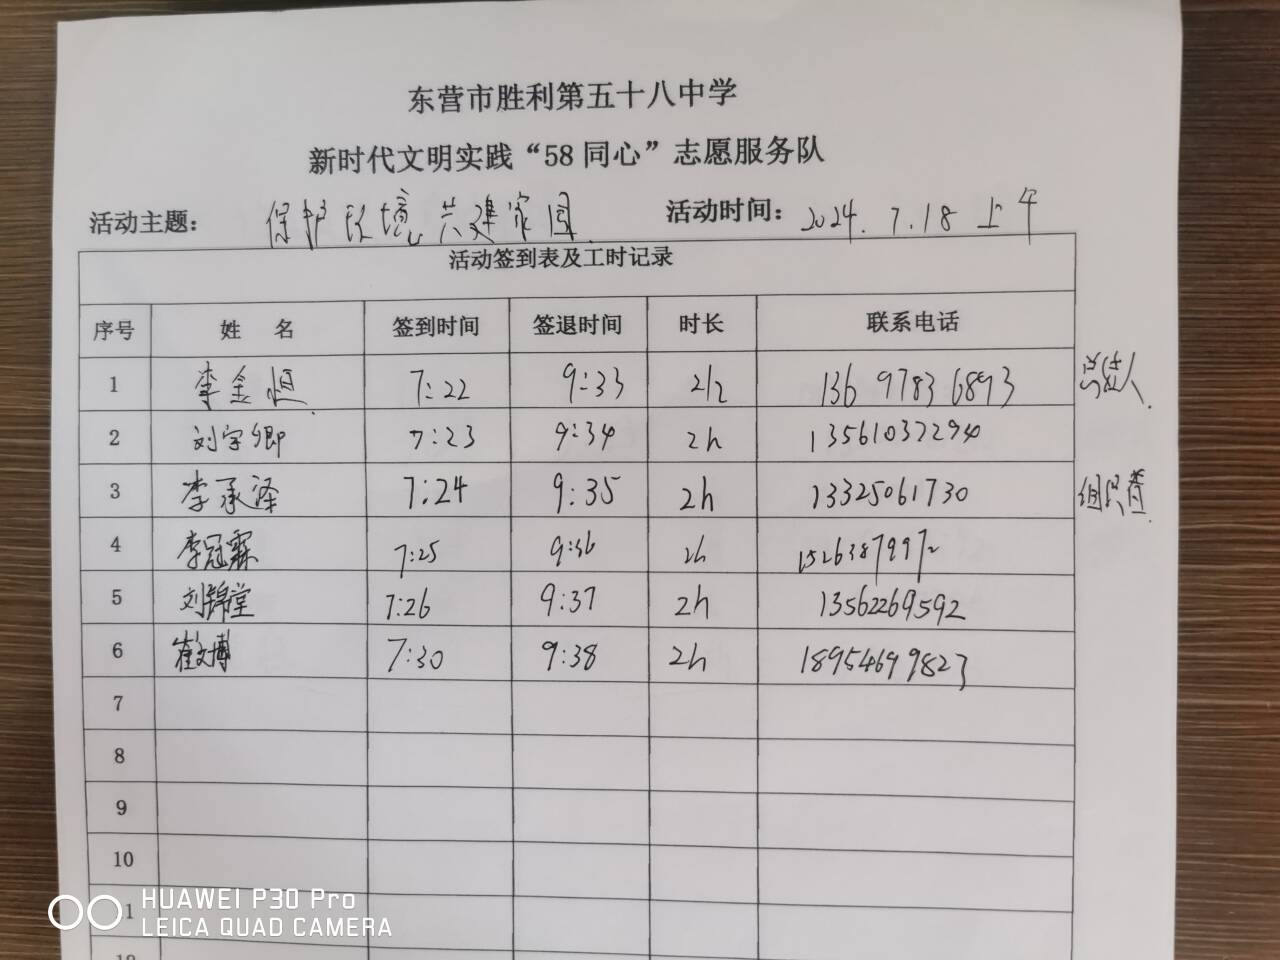 东营市胜利第五十八中学
新时代文明实践“58同心”志愿服务队
活动主题： 保护环境共建家园 活动时间： 2024.7.18上午
活动签到表及工时记录
序号 姓 名 签到时间 签退时间 时长 联系电话
1 李金恒 7:22 9:33 2h 13697836893 总结人.
2 刘宇卿 7:23 9:34 2h 13561037294
3 李承泽 7:24 9:35 2h 13325061730 组织者.
4 李冠霖 7:25 9:36 2h 15263879972
5 刘锦堂 7:26 9:37 2h 13562269592
6 崔文博 7:30 9:38 2h 18954699823
7
8
9
10
1
HUAWEI P30 Pro
LEICA QUAD CAMERA